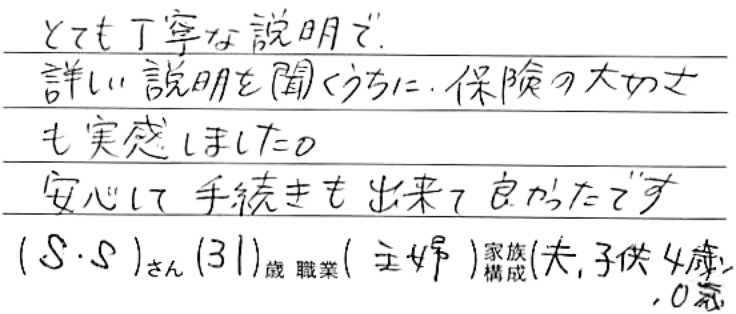 とても丁寧な説明で.
詳しい説明を聞くうちに.保険の大切さ
も実感しました。
安心して手続きも出来て良かったです
(S・S)さん(31)歳 職業(主婦)家族構成(夫,子供4歳,
,0歳